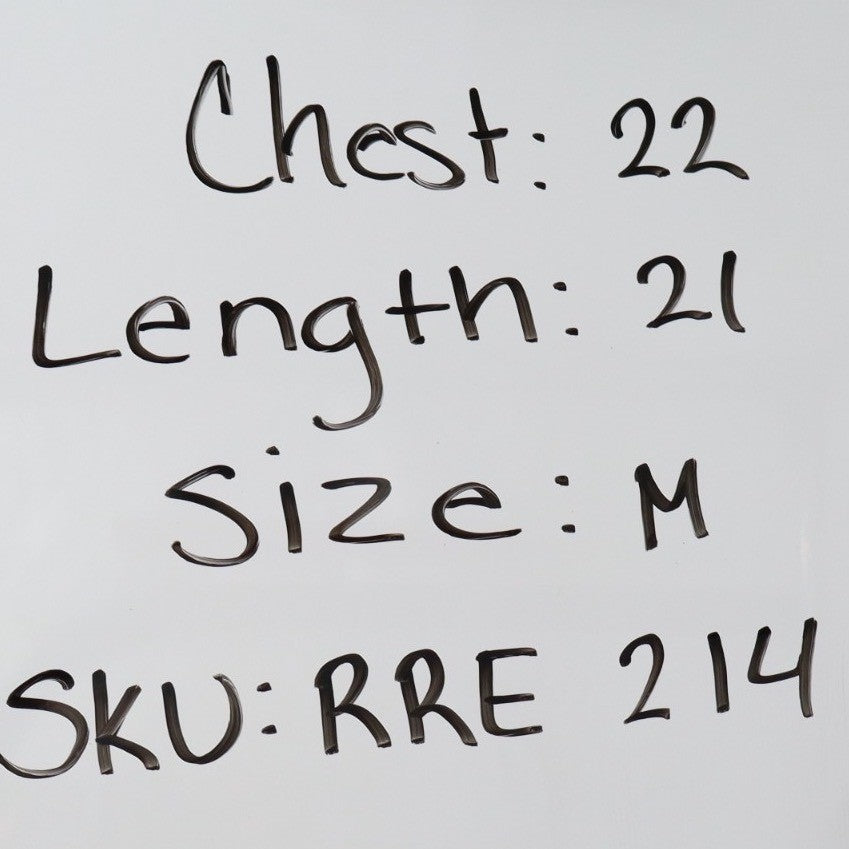 Chest: 22
Length: 21
Size: M
SKU: RRE 214